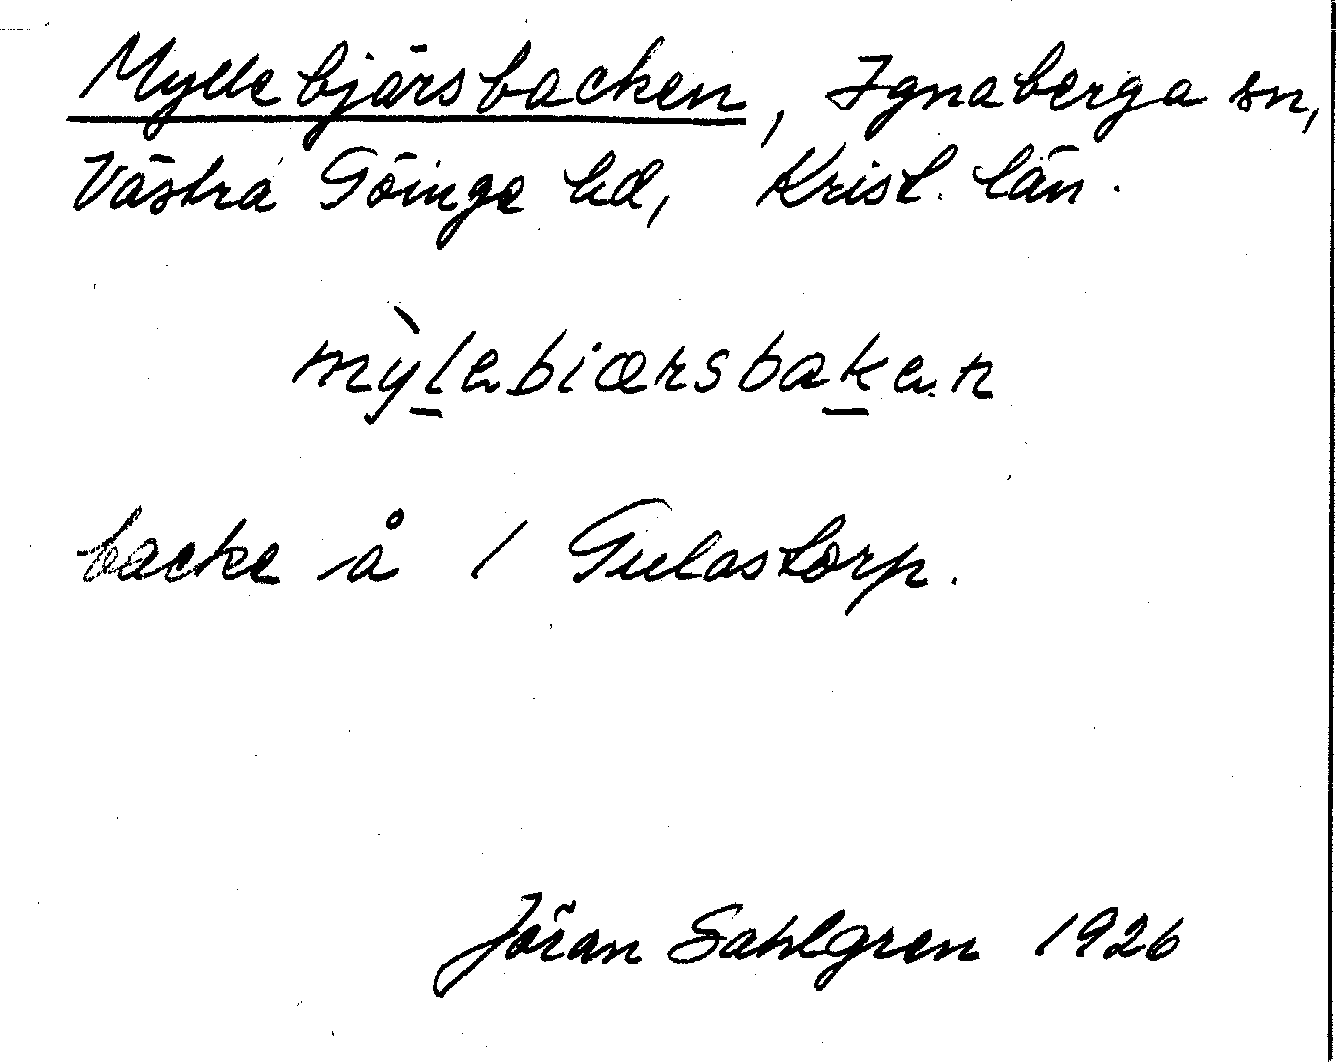 Myllebjärsbacken, Ignaberga sn,
Västra Göinge hd, Krist. län.
mỳl̲ebiærsbak̲en
backe å 1 Gulastorp.
Jöran Sahlgren 1926